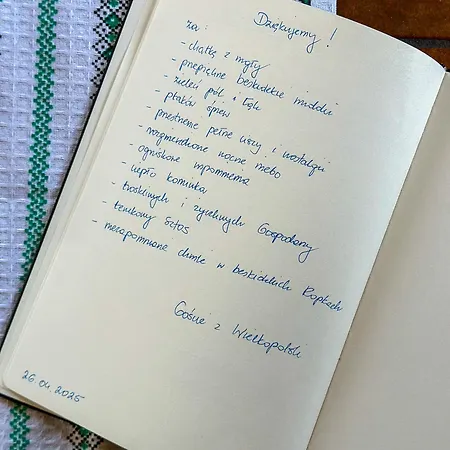 Dziękujemy !
za :
- chatkę z mgły
- przepiękne beskidzkie widoki
- zieleń pól i łąk
- ptaków śpiew
- przestrzenie pełne ciszy i nostalgii
- rozgwieżdżone nocne niebo
- ogniskowe wspomnienia
- ciepło kominka
- troskliwych i życzliwych Gospodarzy
- temkowy
- niezapomniane chwile w beskidzkich Ropkach
Goście z Wielkopolski
26.04.2025